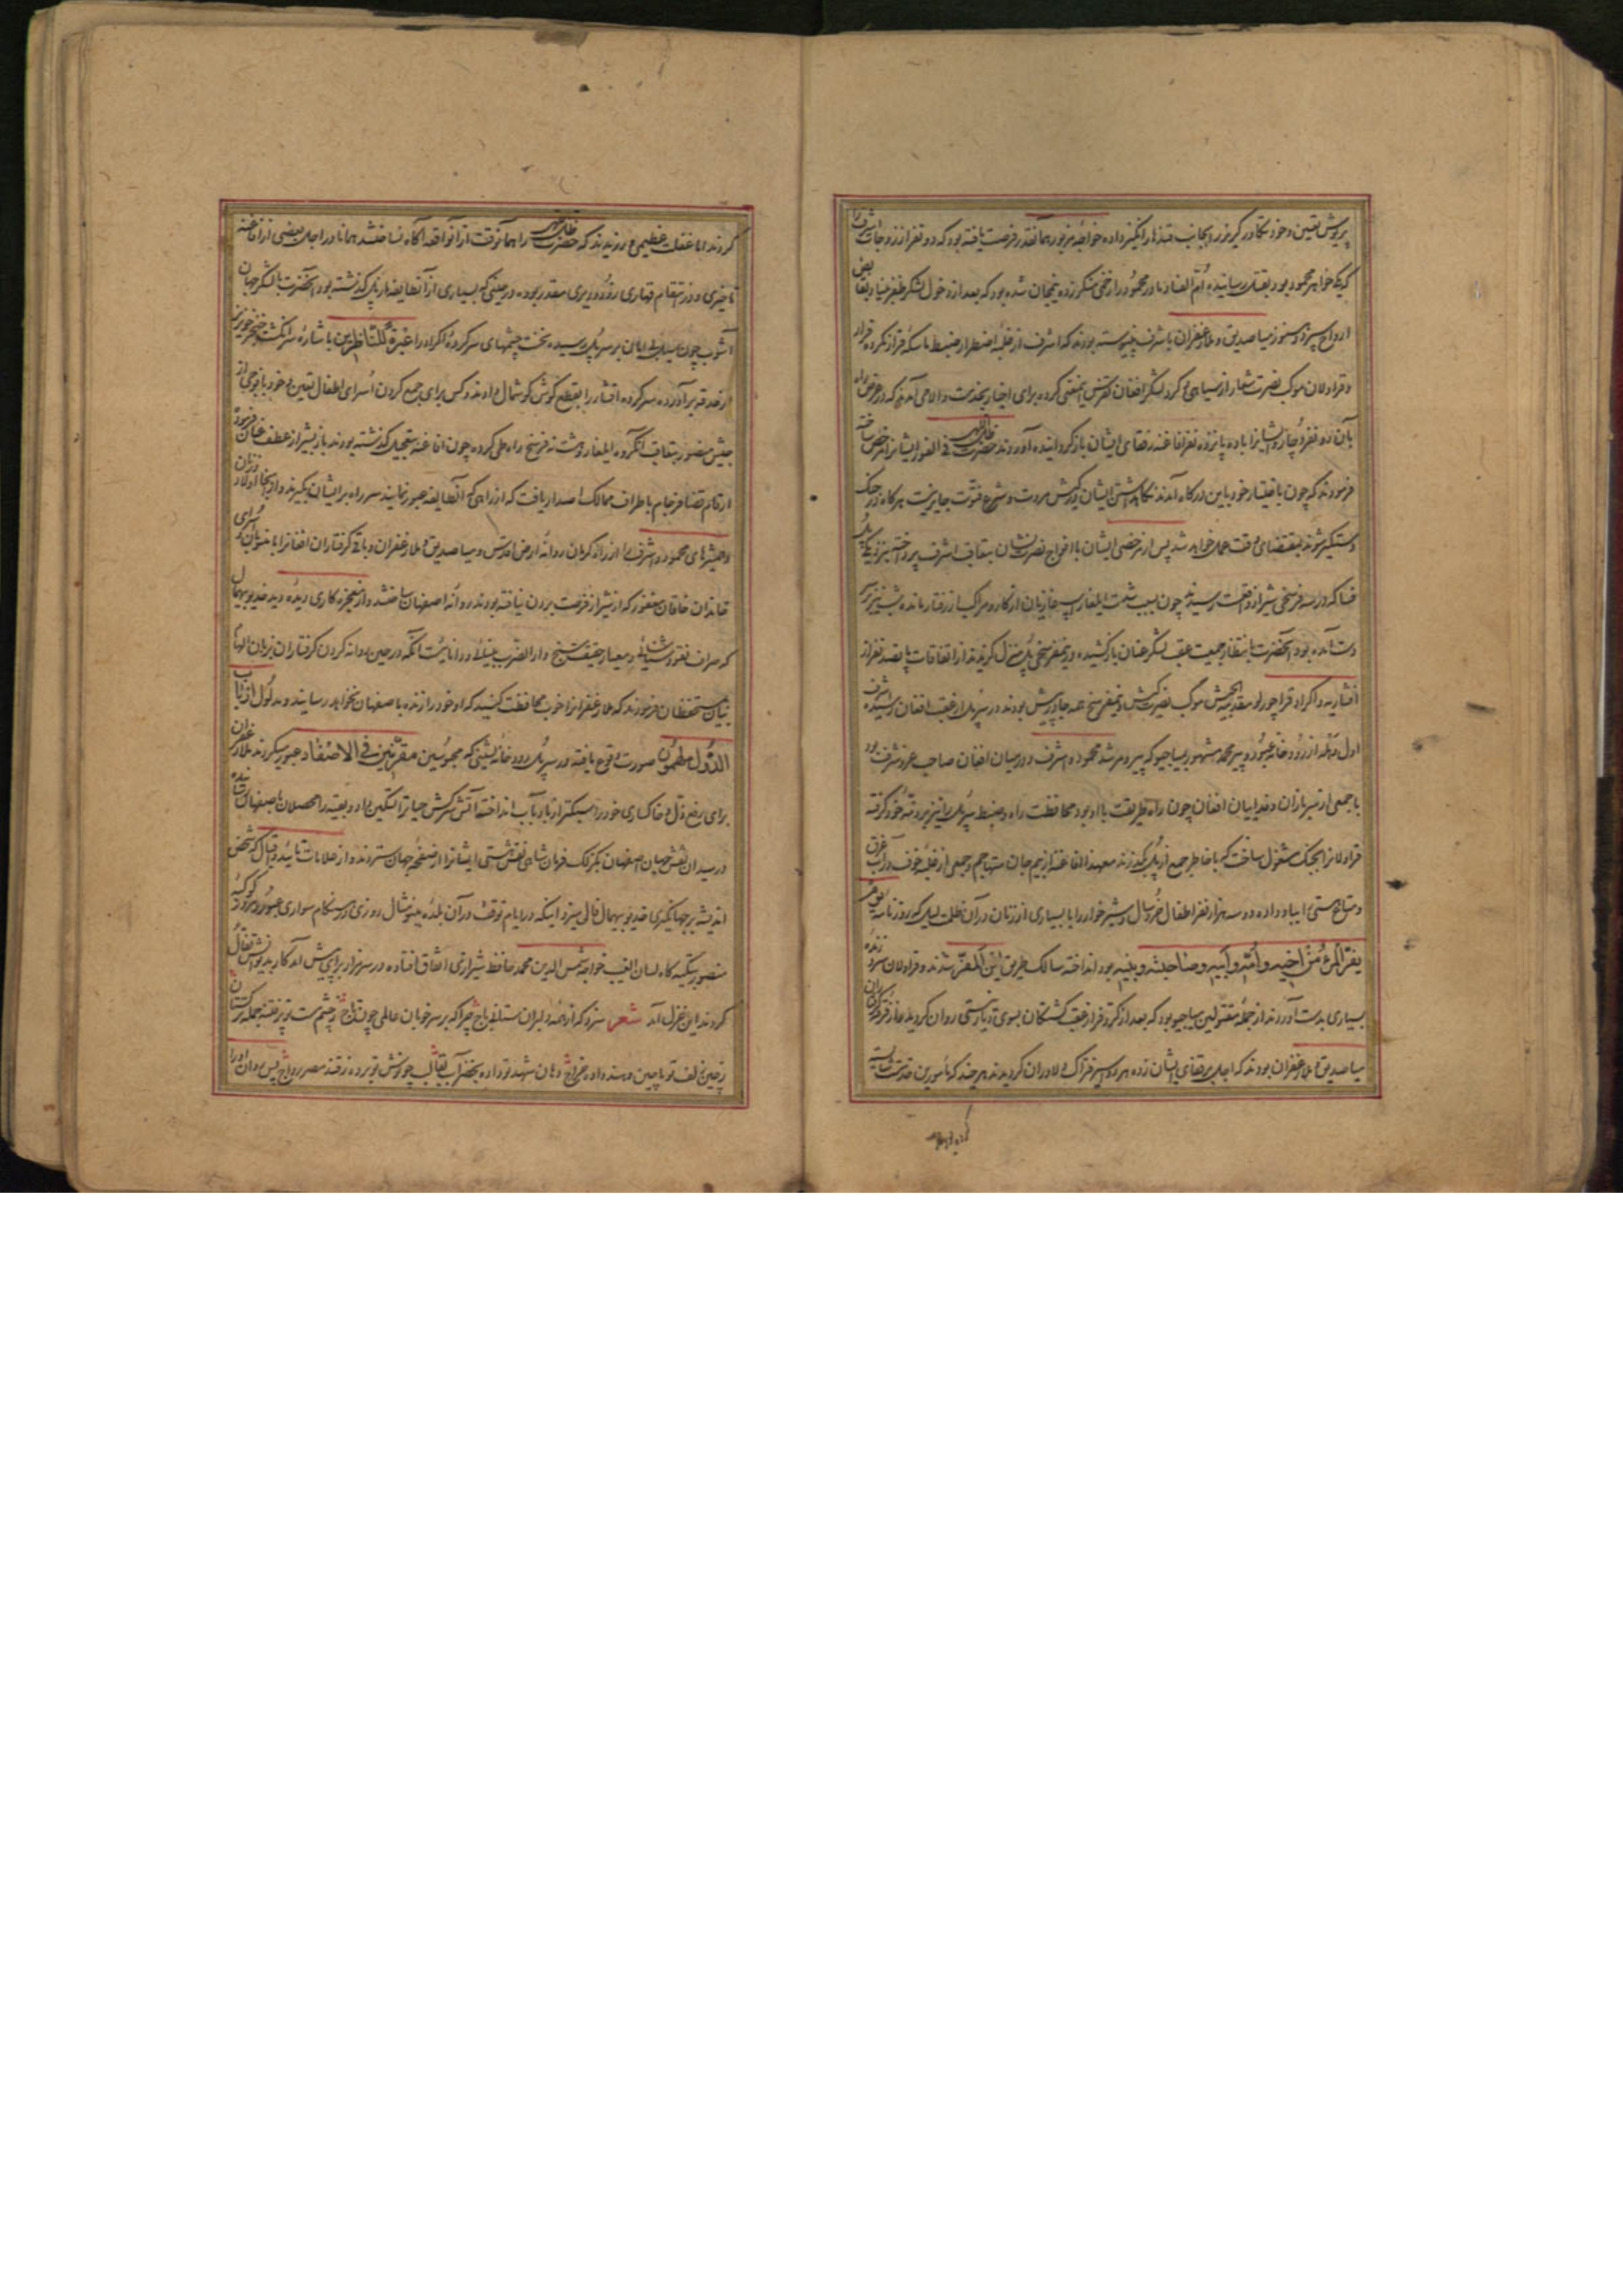 پریوش تعیین و خود تکاور گریز را بجانب قندهار انگیز داده خواجهٔ مزبور همانقدر فرصت یافته بود که دو نفر از زوجات اشرف را
که یکی خواهر محمود بود بقتل رسانیده ام الفساد مادر محمود را زخمی منکر زده نیمجان شده بود که بعد از دخول لشکر ظفر بنیاد بقابض
ارواح سپرد و هنوز میا صدیق و ملا زعفران باشرف نپیوسته بودند که اشرف از غلبهٔ اضطرار ضبط ماسکه قرار نکرده فرار
و قراولان موکب نصرت شعار از سیاهی گرد لشکر افغان تفرس این معنی کرده برای اخبار بخدمت والا می آمدند که در عرض راه
بآن دو نفر دچار و ایشانرا با ده پانزده نفر افاغنه رفقای ایشان بازگردانیده آوردند حضرت ظل اللهی فی الفور ایشانرا مرخص ساخته
فرمودند که چون باختیار خود باین درگاه آمدند نگاهداشتن ایشان در کیش مروت و شرع فتوت جایز نیست هرگاه در جنگ
دستگیر شوند بمقتضای وقت عمل خواهد شد پس از مرخصی ایشان با افواج نصرت نشان بتعاقب اشرف پرداخته بنزدیک پل
فسا که در سه فرسخی شیراز واقعست رسیدند چون بسبب شدت ایلغار اسب غازیان از کار و مراکب از رفتار مانده شب نیز بر سر
دست آمده بود آنحضرت بانتظار جمعیت عقب لشکر عنان باز کشیده در نیمفرسخی پل منزل گزیدند از اتفاقات پانصد نفر از
افشاریه و اکراد قراچورلو مقدمة الجیش موکب نصرت کیش و نیمفرسخ همه جا در پیش بودند در سر پل از عقب افغان رسیده اشرف
اول وهله از رودخانه عبور و پیر محمد مشهور بمیاجیو که پیر و مرشد محمود و اشرف و در میان افغان صاحب عز و شرف بود
با جمعی از سربازان و فدائیان افغان چون راه طریقت با او بود محافظت راه و ضبط سر پل را نیز بر ذمهٔ خود گرفته
قراولانرا بجنگ مشغول ساخت که با خاطر جمع از پل بگذرند معهذا افاغنه از بیم جان متهاجم و جمعی از غلبهٔ خوف در آب غرق
و متاع هستی را بباد داده دو سه هزار نفر اطفال خردسال و شیرخوار را با بسیاری از زنان در آن ظلمت لیل که روزنامهٔ یوم
یفر المرء من اخیه و امه و ابیه و صاحبته و بنیه بود انداخته سالک طریق این المفر شدند و قراولان سر و زنده
بسیاری بدست آوردند از جمله مقتولین میاجیو بود که بعد از کر و فر از عقب کشتگان بسوی دیار نیستی روان گردید و از گرفتگان
میا صدیق و ملا زعفران بودند که اجل بر قفای ایشان زده هر دو اسیر فتراک دلاوران گردیدند هر چند که مأمورین خدمت شایسته
کردند اما غفلت عظیمی ورزیدند که حضرت ظل اللهی را همانوقت از آنواقعه آگاه نساختند همانا در اجل بعضی از افاغنه
تاخیری و در انتقام قهاری زود و دیری مقدر بوده در حینی که بسیاری از آنطایفه از پل گذشته بود آنحضرت با لشکر جهان
آشوب چون سیل بی امان بر سر پل رسیده نخست چشمهای سرکردهٔ اکراد را عبرة للناظرین باشارهٔ سر انگشت خنجر خونریز
از حدقه برآورده سرکرده افشار را بقطع گوش گوشمال دادند و کس برای جمع کردن اسرای اطفال تعیین و خود با فوجی از
جیش منصور بتعاقب آنگروه ایلغار و هشت نه فرسخ راه طی کرده چون افاغنه بتعجیل گذشته بودند باز بشیراز عطف عنان فرموده
ارقام قضا فرجام باطراف ممالک اصدار یافت که از راهی که آنطایفه عبور نمایند سر راه بر ایشان بگیرند و از آنجا اولاد و زنان
و همشیرهای محمود و اشرف را از راه کرمان روانهٔ ارض اقدس و میا صدیق و ملا زعفران و باقی گرفتاران افغانرا با منسوبان و اسرای
خاندان خاقان مغفور که از شیراز فرصت بردن نیافته بودند روانهٔ اصفهان ساختند و از معجزه کاری دیدهٔ دید خدیو بیهمال
که صراف نقود شناسائی و معیار حقیقت سنج دارالضرب بینائی و دانائیست آنکه در حین روانه کردن گرفتاران بزبان الهام
بیان بمستحفظان فرمودند که ملا زعفرانرا خوب محافظت کنید که او خود را زنده باصفهان نخواهد رسانید و مدلول ارباب
الدول ملهمون صورت وقوع یافته در سر پل رودخانه بشینی که محبوسین مقرنین فی الاصفاد عبور میکردند ملا زعفران
برای رفع ذل و خاکساری خود را سبکتر از باد بآب انداخته آتش سرکش حیاترا تسکین داد و بقیه را محصلان باصفهان رسانیده
در میدان نقش جهان اصفهان بگزلک فرمان شاهی نقش هستی ایشانرا از صفحهٔ جهان ستردند و از علامات تائید و اقبال که مختص
اندیشه بر جهانگیری خدیو بیهمال فالی میزد اینکه در ایام توقف در آن بلدهٔ مینو مثال روزی در هنگام سواری عبور و مرور کوکبهٔ
منصور بتکیه گاه لسان الغیب خواجه شمس الدین محمد حافظ شیرازی اتفاق افتاده در سر مزار پر انوارش آمد کار بدیوانش تفأل
کردند این غزل آمد شعر سزد که از همه دلبران ستانی باج چرا که بر سر خوبان عالمی چون تاج دو چشم مست تو بر فتنه جمله ترکستان
بچین زلف تو ماچین و هند داده خراج دهان شهد تو داده بخضر آب بقا لب چو نوش تو برده ز قند مصر رواج پس روان او را